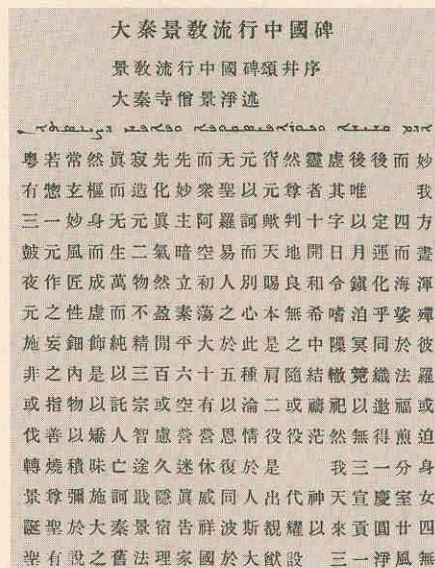 大秦景教流行中國碑
景教流行中國碑頌幷序
大秦寺僧景淨述
粵若常然眞寂先先而无元窅然靈虛後後而妙
有惣玄樞而造化妙衆聖以元尊者其唯 我
三一妙身无元眞主阿羅訶歟判十字以定四方
鼓元風而生二氣暗空易而天地開日月運而晝
夜作匠成萬物然立初人別賜良和令鎮化海渾
元之性虛而不盈素蕩之心本無希嗜洎乎娑殫
施妄鈿飾純精閒平大於此是之中隟冥同於彼
非之內是以三百六十五種肩隨結轍竸織法羅
或指物以託宗或空有以淪二或禱祀以邀福或
伐善以矯人智慮營營恩情役役茫然無得煎迫
轉燒積昧亡途久迷休復於是 我三一分身
景尊彌施訶戢隱眞威同人出代神天宣慶室女
誕聖於大秦景宿告祥波斯覩耀以來貢圓廿四
聖有說之舊法理家國於大猷設 三一淨風無